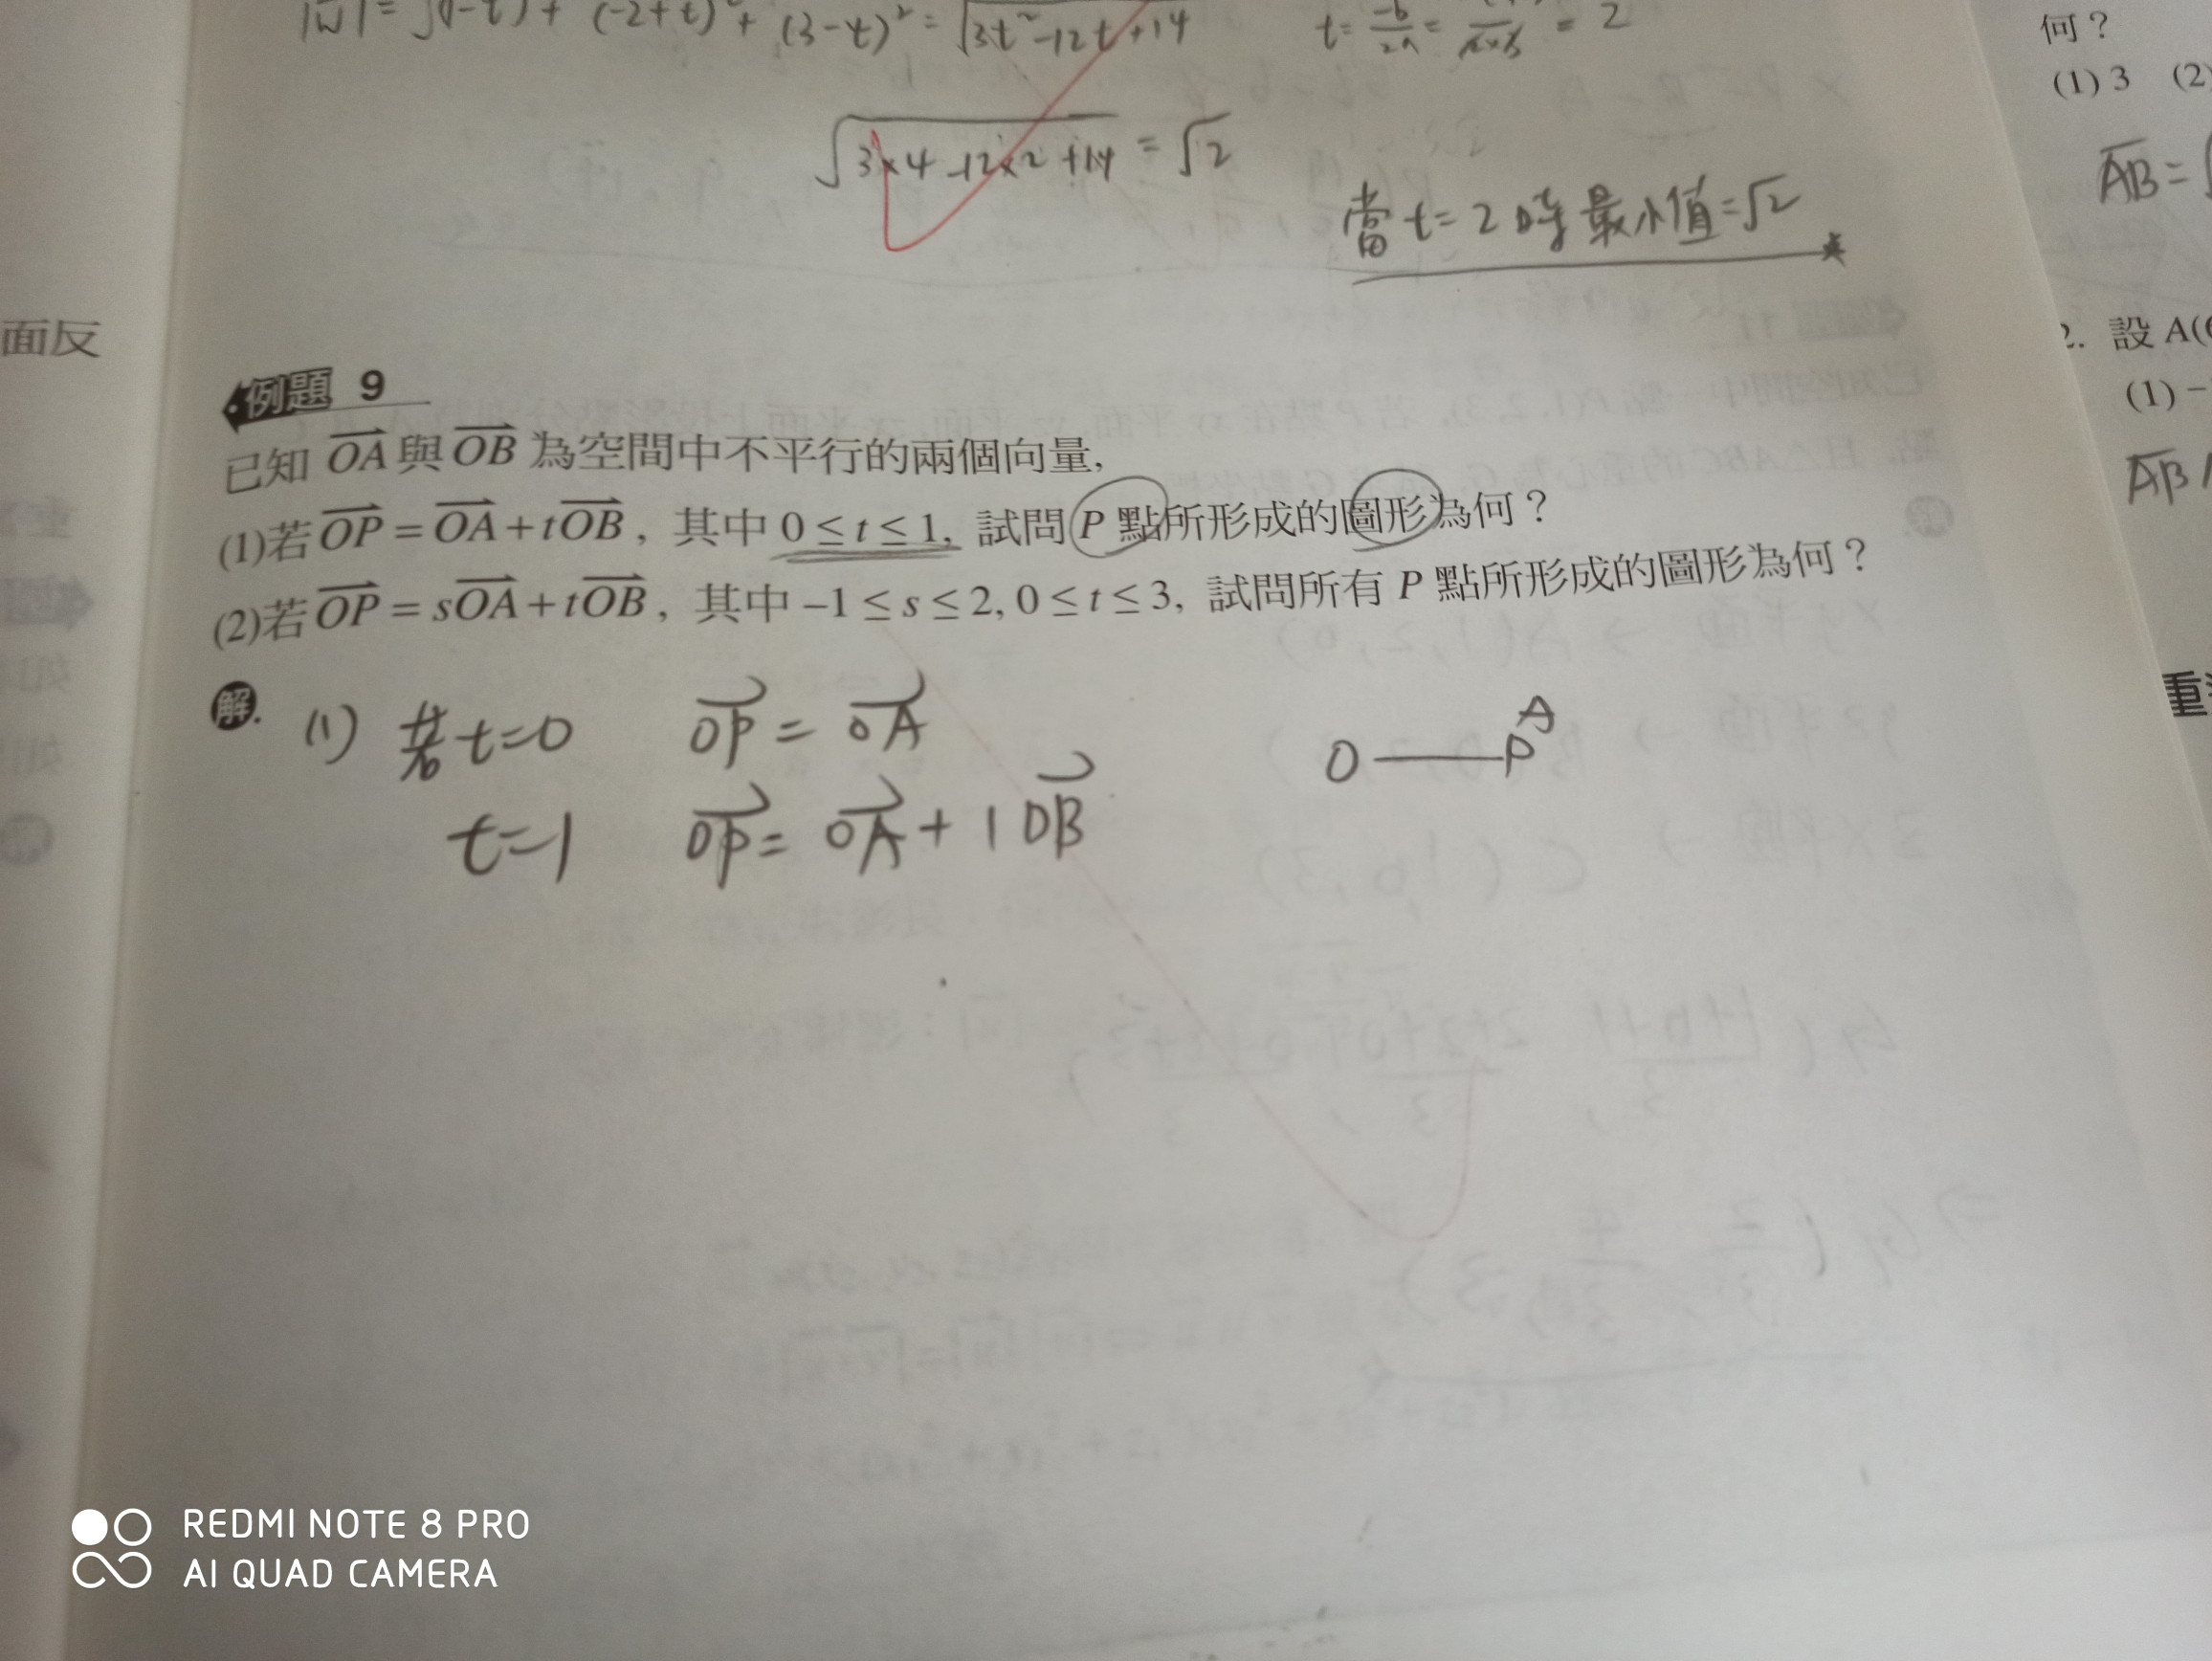 |w| = √(1-t)² + (-2+t)² + (3-t)² = √3t²-12t+14    t = -b/2a =    = 2
何？
(1) 3 (2)
√3×4-12×2+14 = √2
AB = √
當 t = 2 時 最小值 = √2
面反
2. 設 A(
(1) –
AB
例題 9
已知 OA 與 OB 為空間中不平行的兩個向量,
(1)若 OP = OA + tOB , 其中 0 ≤ t ≤ 1, 試問 P 點所形成的圖形為何？
(2)若 OP = sOA + tOB , 其中 –1 ≤ s ≤ 2, 0 ≤ t ≤ 3, 試問所有 P 點所形成的圖形為何？
解. (1) 若 t=0    OP = OA    O — P A
t=1    OP = OA + 1 OB
REDMI NOTE 8 PRO
AI QUAD CAMERA